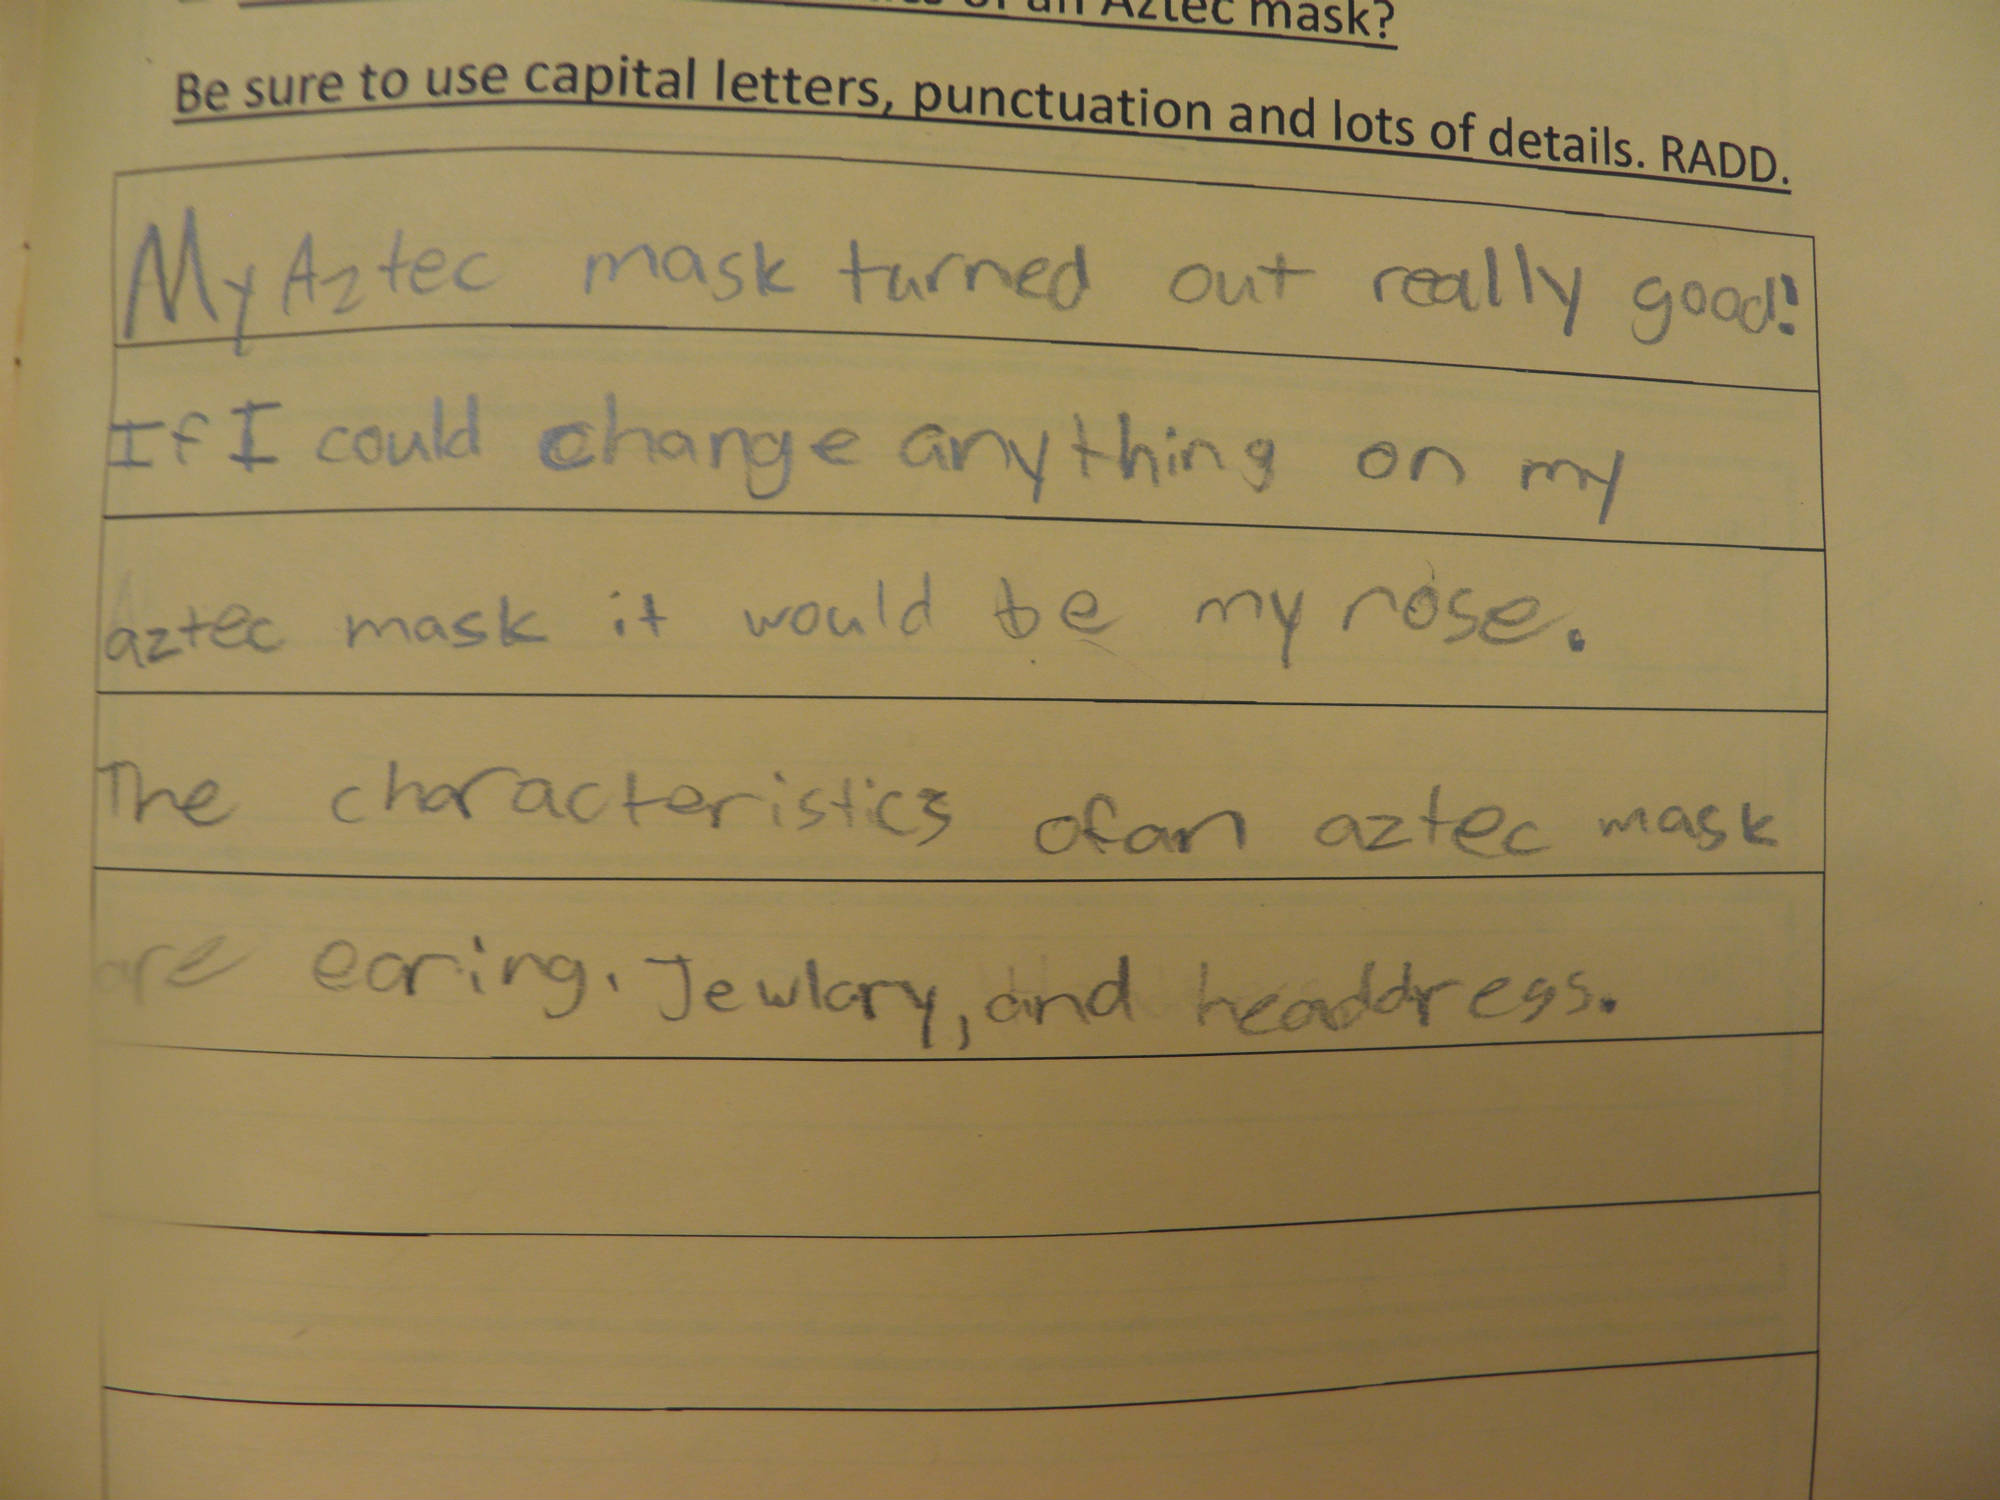 of an Aztec mask?
Be sure to use capital letters, punctuation and lots of details. RADD.
My Aztec mask turned out really good!
If I could change anything on my
aztec mask it would be my rose.
The characteristics of an aztec mask
are earing. Jewlary, and headdress.